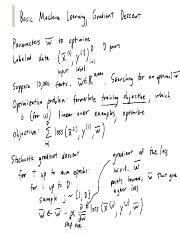 Basic Machine Learning, Gradient Descent
Parameters w̄ to optimize
Labeled data {x̄⁽ⁱ⁾, y⁽ⁱ⁾}ᴰ D points
input label i=1
Suppose 10,000 feats, w̄ ∈ R Searching for an optimal w̄
Optimization problem: formulate training objective, which
is (for us) linear over examples, optimize
Objective: Σ loss(x̄⁽ⁱ⁾, y⁽ⁱ⁾, w̄)
Stochastic gradient descent
for T up to num epochs:
for i up to D:
sample j ~ [1, D]
w̄ ← w̄ - α ∂/∂w̄ loss(x̄⁽ʲ⁾, y⁽ʲ⁾, w̄)
step size
gradient of the loss
w.r.t. w̄
points towards w̄ that give
higher loss